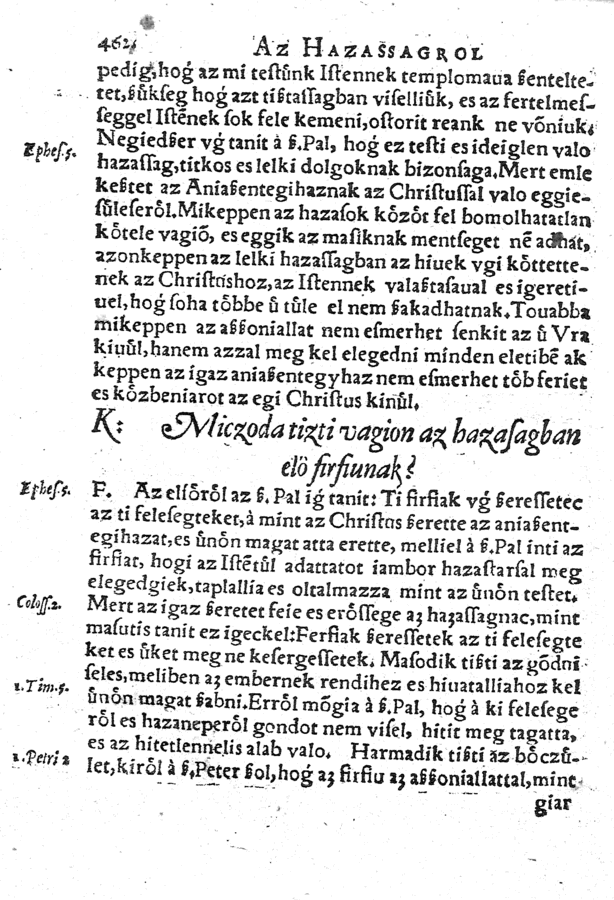 462.
AZ HAZASSAGROL
pedig, hoǵ az mi testůnk Istennek templomaua ßentelte-
tet, ßůkseg hoǵ azt tißtassagban viselliůk, es az fertelmes-
seggel Istēnek sok fele kemeni, ostorit reank ne võniuk.
Ephes. 5.
Negiedßer vǵ tanit à ß. Pal, hoǵ ez testi es ideiglen valo
hazassag, titkos es lelki dolgoknak bizonsaga. Mert emle
keßtet az Aniaßentegihaznak az Christussal valo eggie-
sůleseről. Mikeppen az hazasok kőzőt fel bomolhatatlan
kőtele vagiō, es eggik az masiknak mentseget nē adhat,
azonkeppen az lelki hazassagban az hiuek vgi kőttette-
nek az Christushoz, az Istennek valaßtasaual es igereti-
uel, hoǵ soha tőbbe ů tůle el nem ßakadhatnak. Touabba
mikeppen az aßßoniallat nem esmerhet senkit az ů Vra
kiuůl, hanem azzal meg kel elegedni minden eletibē ak
keppen az igaz aniaßentegyhaz nem esmerhet tőb feriet
es kőzbeniarot az egi Christus kinůl.
K: Miczoda tizti vagion az hazasagban
elő firfiunak?
Ephes. 5.
F. Az elsőről az ß. Pal iǵ tanit: Ti firfiak vǵ ßeressetec
az ti felesegteket, à mint az Christus ßerette az aniaßent-
egihazat, es ůnőn magat atta erette, melliel à ß. Pal inti az
firfiat, hogi az Istētůl adattatot iambor hazastarsal meg
elegedgiek, taplallia es oltalmazza mint az ůnőn testet.
Coloss. 2.
Mert az igaz ßeretet feie es erőssege az hazassagnac, mint
masutis tanit ez igeckel: Ferfiak ßeressetek az ti felesegte
ket es ůket meg ne kesergessetek. Masodik tißti az gődni
seles, meliben az embernek rendihez es hiuatalliahoz kel
1. Tim. 5.
ůnőn magat ßabni. Erről mōgia à ß. Pal, hoǵ à ki felesege
ről es hazaneperől gondot nem visel, hitit meg tagatta,
es az hitetlennelis alab valo. Harmadik tißti az bőczů-
1. Petri 2
let, kiről à ß. Peter ßol, hoǵ az firfiu az aßßoniallattal, mint
giar